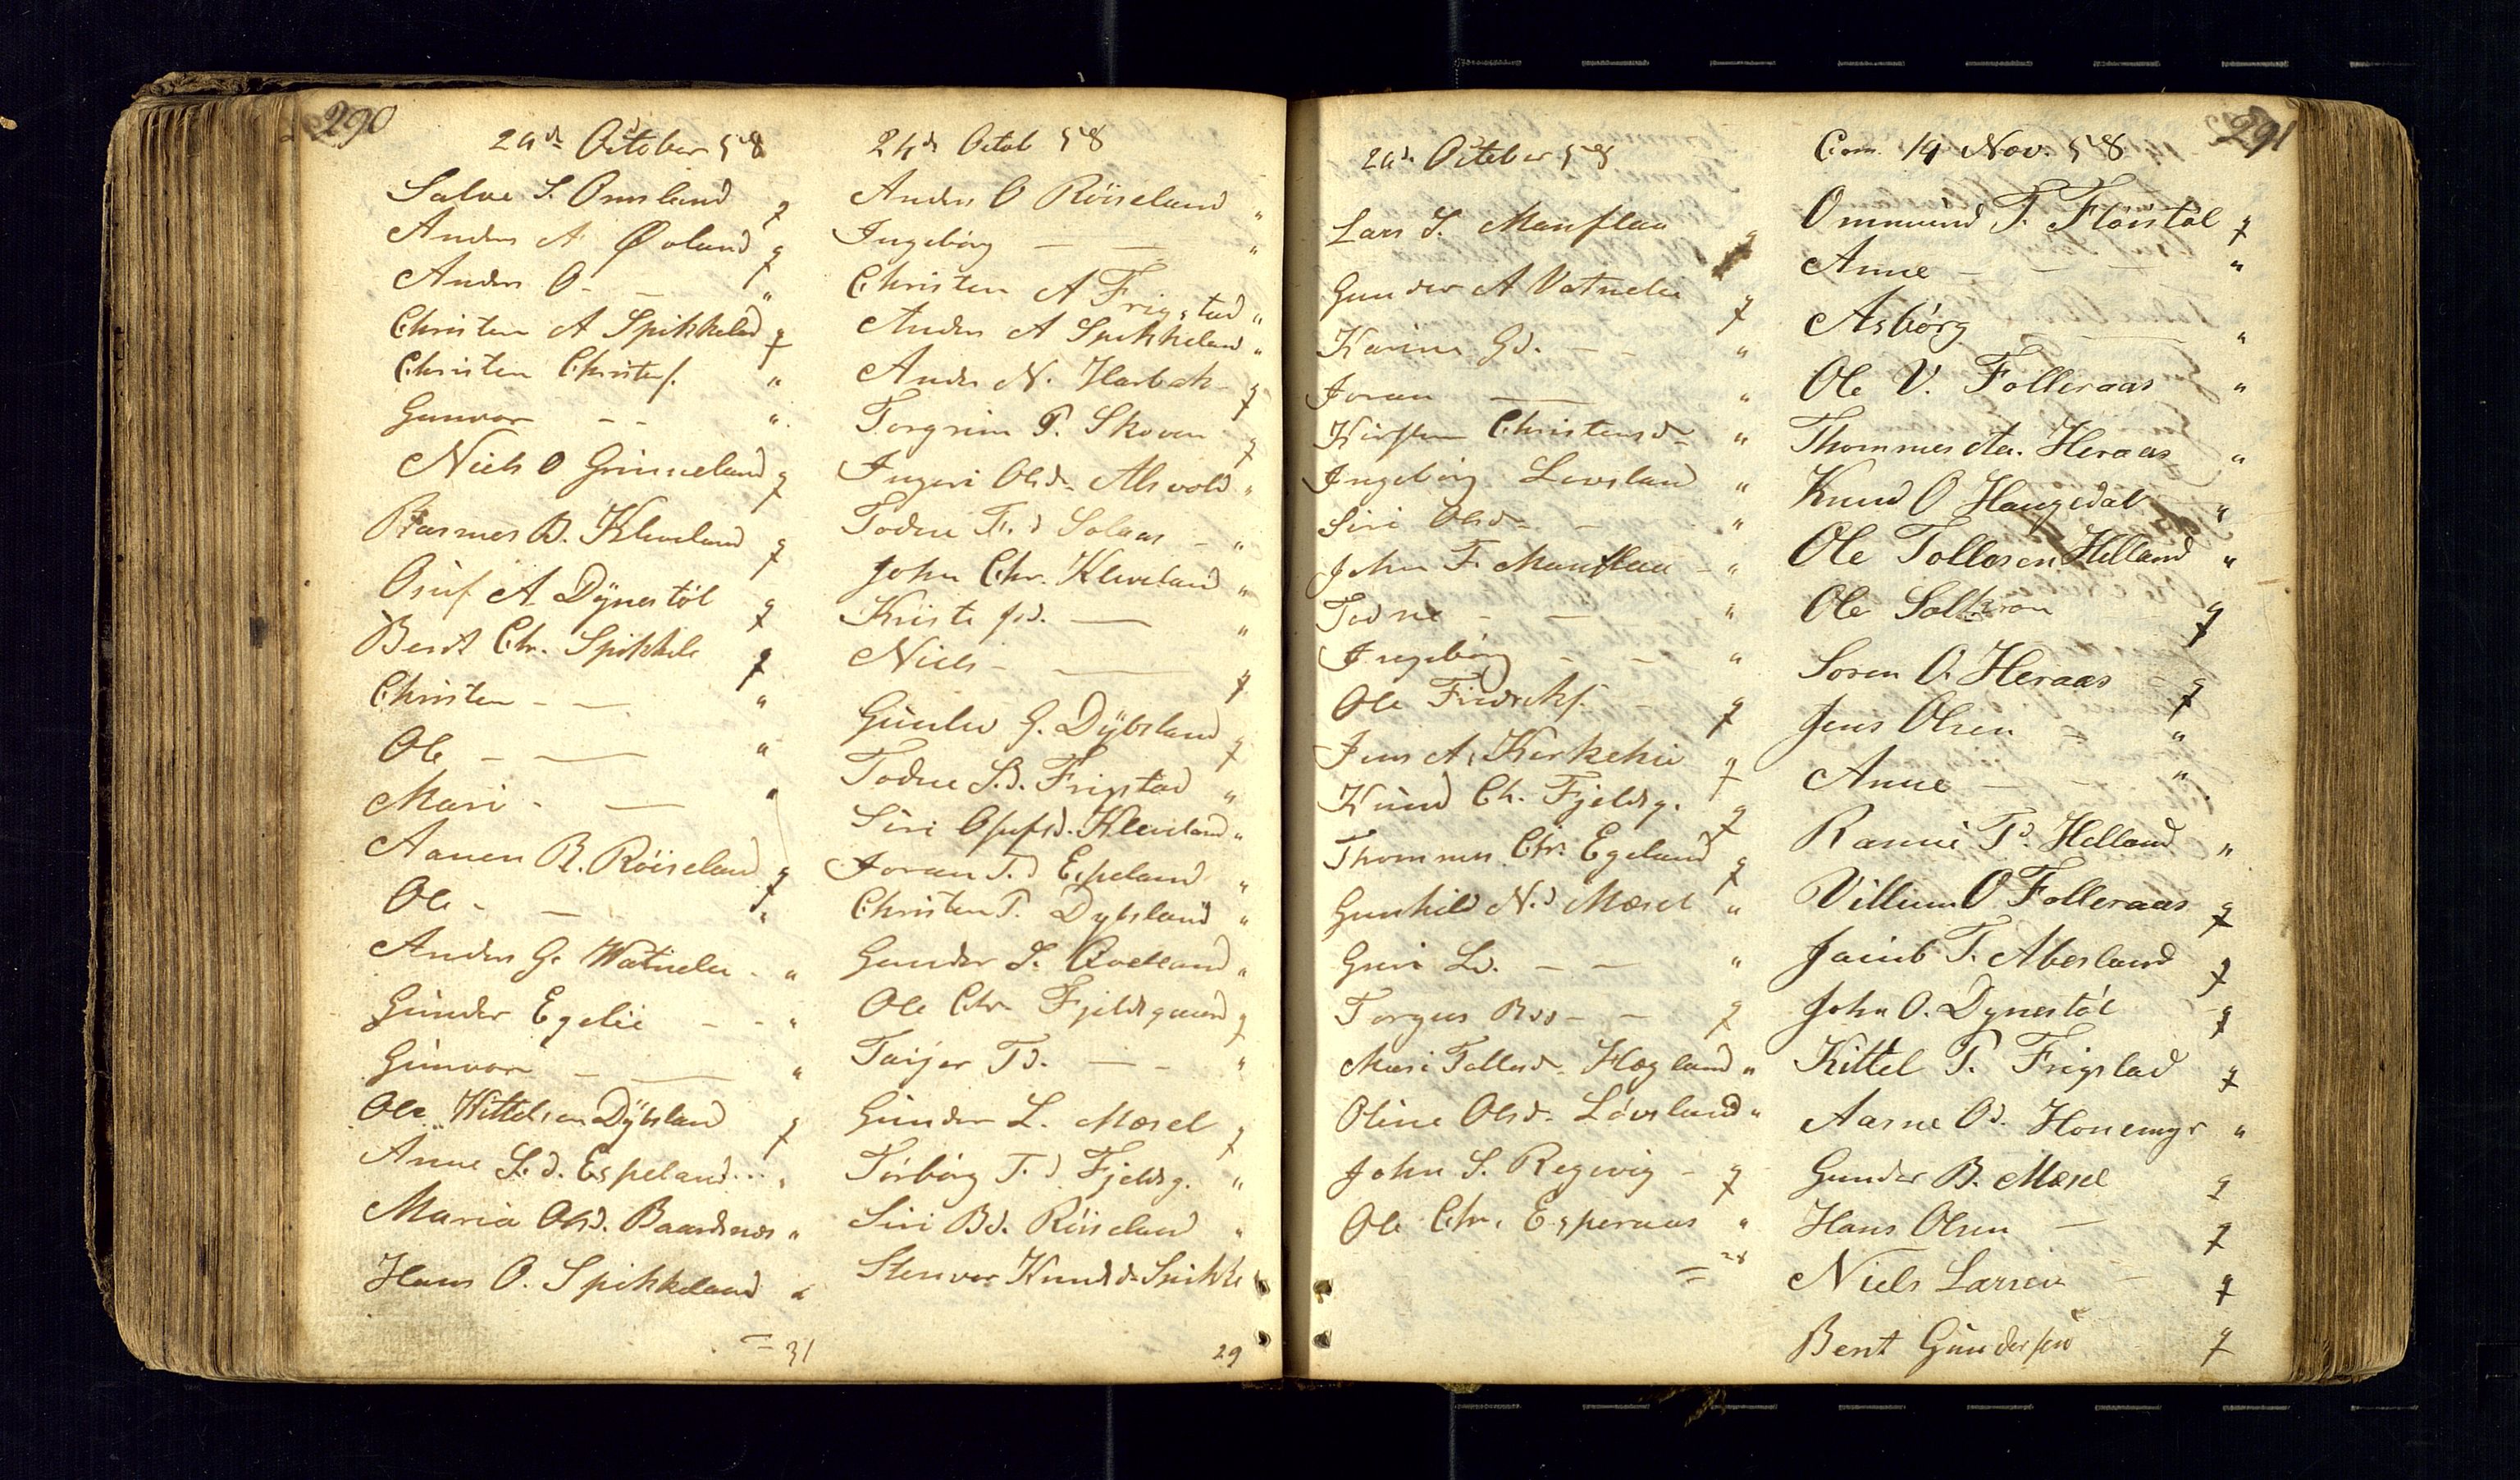 290
24de October 58
Salve S. Omsland q
Anders A Øvland q
Anders O - - "
Christen A Spikkeland q
Christen Christens. "
Gunvor - - "
Niels O Grimeland q
Rasmus B. Kleveland q
Osuf A Dynestøl q
Berdt Chr. Spikkele q
Christen - - "
Ole - - "
Mari - - "
Aanen R. Röiseland q
Ole - - "
Anders G. Watnelie - "
Günder Egelie - - "
Gunvor - - "
Ole Kittelsen Dÿbsland q
Anne L.d. Espeland... "
Maria Olsd. Baardsnes "
Hans O. Spikkeland "
= 31
24de Octob 58
Anders O Röiseland "
Ingebörg - - "
Christen A Frigstad "
Anders A Spikkeland "
Anders N. Harbak q
Torgrim P. Skoven q
Ingeri Olsd. Alsvold "
Todne T.d Solaas - "
John Chr. Kleveland "
Kristi Jd. - "
Niels - - q
Günlev G. Dÿbsland q
Todne S.d. Frigstad "
Siri Osufsd. Kleveland "
Joran T.d Espeland "
Christen T. Dybsland "
Gunder S. Qvelland "
Ole Chr. Fjeldsgaard q
Taijer Td. - - "
Günder L. Mæsel q
Törbörg T.d Fjeldsg. "
Siri Bd. Röiseland "
Stenvor Knudsd. Spikke "
29
291
24de October 58
Lars S. Manflaa q
Gunder A Vatnelie q
Karine Gd. - - "
Joran - "
Kirsten Christensd. "
Ingebörg Lovsland "
Siri Olsd. - "
John F. Manflaa - "
Todne - - "
Ingebörg - - "
Ole Fredriks. - q
Jens A. Kirkehei q
Knud Ch. Fjeldsg. q
Thommes Chr. Egeland q
Gunhild N.d Mæsel "
Guri Ld. - - "
Torgus - - q
Mari Tollesd. Hægland "
Oline Olsd. Løvsland "
John S. Regevig - q
Ole Chr. Esperaas "
= 28
Com. 14 Nov. 58
Ommund T. Flöistöl q
Anne - - - "
Asbörg - - "
Ole V. Folleraas "
Thommes Aa. Heraas "
Knud O Haugedal "
Ole Tollesen Helland "
Ole Salveson q
Soren O. Heraas - q
Jens Olsen - "
Anne - - "
Rannei T.d Helland "
Villium O Folleraas q
Jacob T. Abesland q
John O. Dynestöl q
Kittel T. Frigstad q
Aasne Od. Honemyr "
Gunder B. Mæsel q
Hans Olsen - q
Niels Larsen - q
Bent Gündersen q